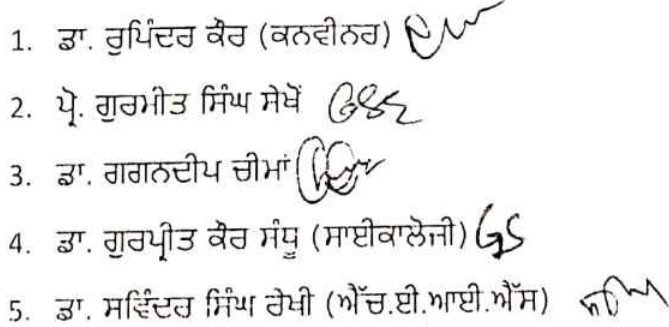 1. ਡਾ. ਰੁਪਿੰਦਰ ਕੌਰ (ਕਨਵੀਨਰ)
2. ਪ੍ਰੋ. ਗੁਰਮੀਤ ਸਿੰਘ ਸੇਖੋਂ
3. ਡਾ. ਗਗਨਦੀਪ ਚੀਮਾਂ
4. ਡਾ. ਗੁਰਪ੍ਰੀਤ ਕੌਰ ਸੰਧੂ (ਸਾਈਕਾਲੋਜੀ) GS
5. ਡਾ. ਸਵਿੰਦਰ ਸਿੰਘ ਰੇਖੀ (ਐੱਚ.ਈ.ਆਈ.ਐੱਸ)